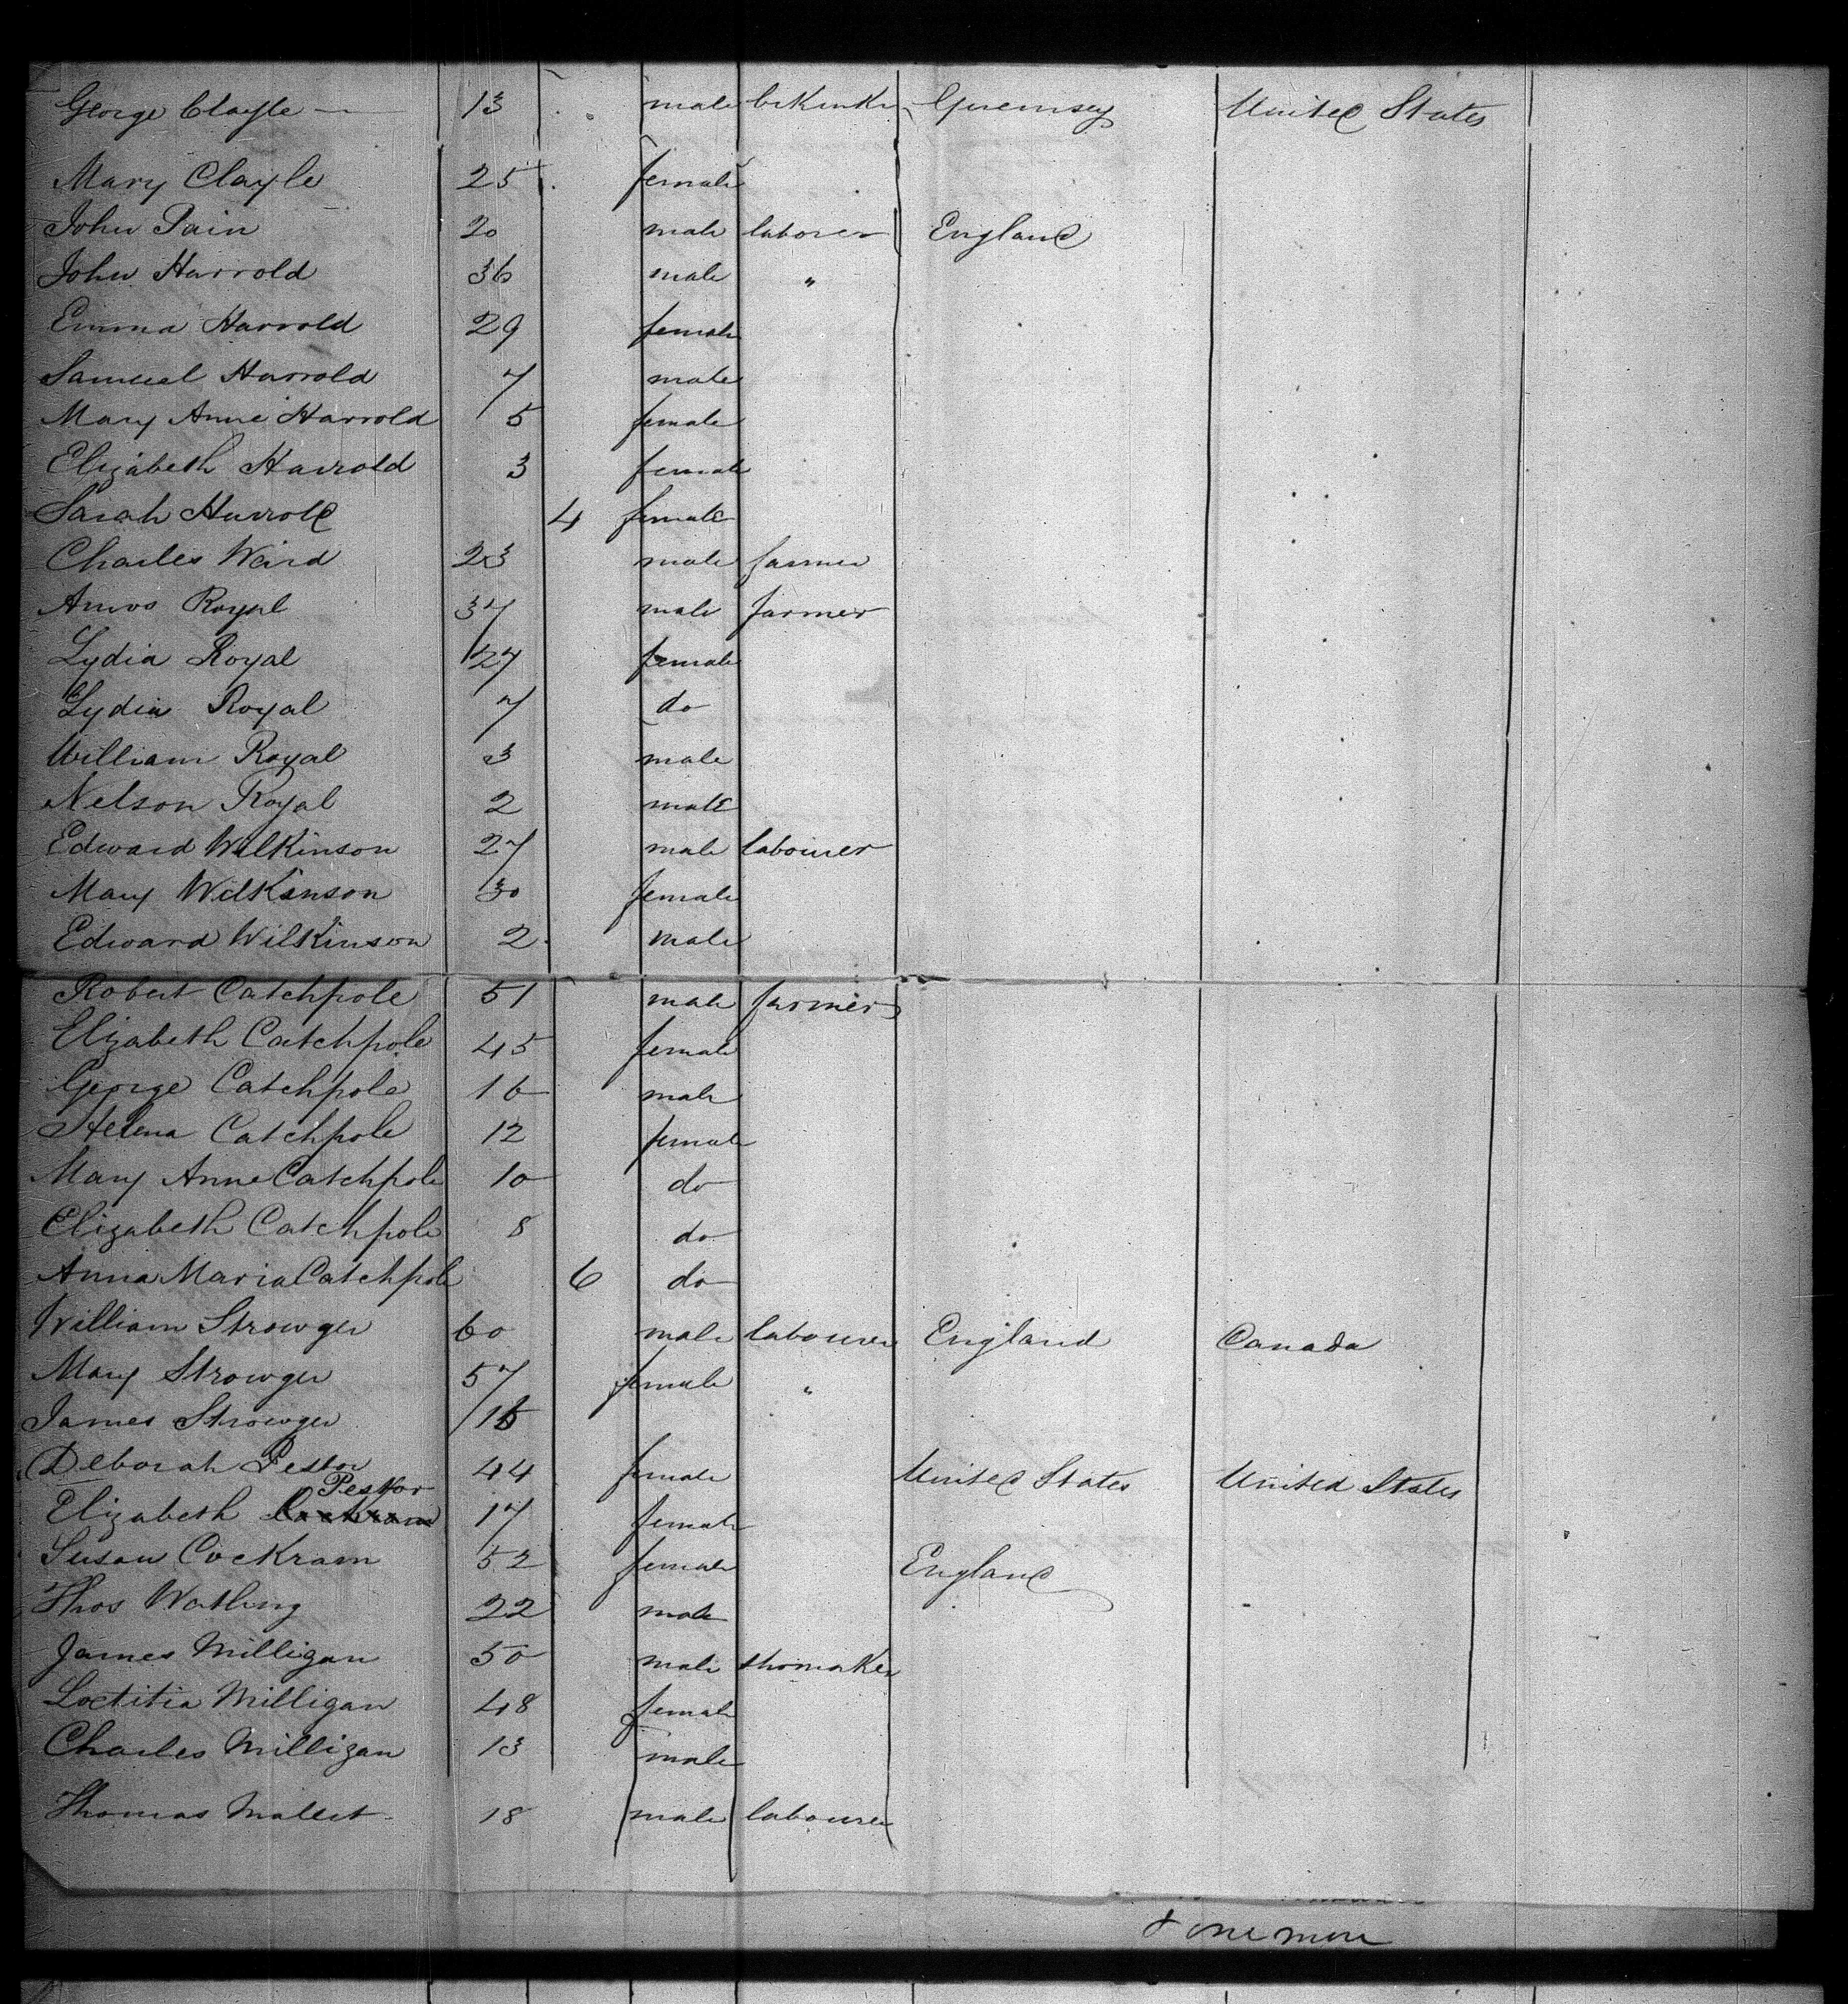 George Clayle 13 male Guernsey United States
Mary Clayle 25 female
John Pain 20 male laborer England
John Harrold 36 male "
Emma Harrold 29 female
Samuel Harrold 7 male
Mary Anne Harrold 5 female
Elizabeth Harrold 3 female
Sarah Harrold 4 female
Charles Ward 23 male farmer
Amos Royal 37 male farmer
Lydia Royal 27 female
Lydia Royal 7 do
William Royal 3 male
Nelson Royal 2 male
Edward Wilkinson 27 male labourer
Mary Wilkinson 30 female
Edward Wilkinson 2 male
Robert Catchpole 51 male farmer
Elizabeth Catchpole 45 female
George Catchpole 16 male
Helena Catchpole 12 female
Mary Anne Catchpole 10 do
Elizabeth Catchpole 8 do
Anna Maria Catchpole 6 do
William Strowger 60 male labourer England Canada
Mary Strowger 57 female "
James Strowger 16
Deborah Pestor 44 female United States United States
Pestor
Elizabeth Cockram 17 female
Susan Cockram 52 female England
Thos Watling 22 male
James Milligan 50 male shomaker
Loetitia Milligan 48 female
Charles Milligan 13 male
Thomas Mallet 18 male labourer
& one more